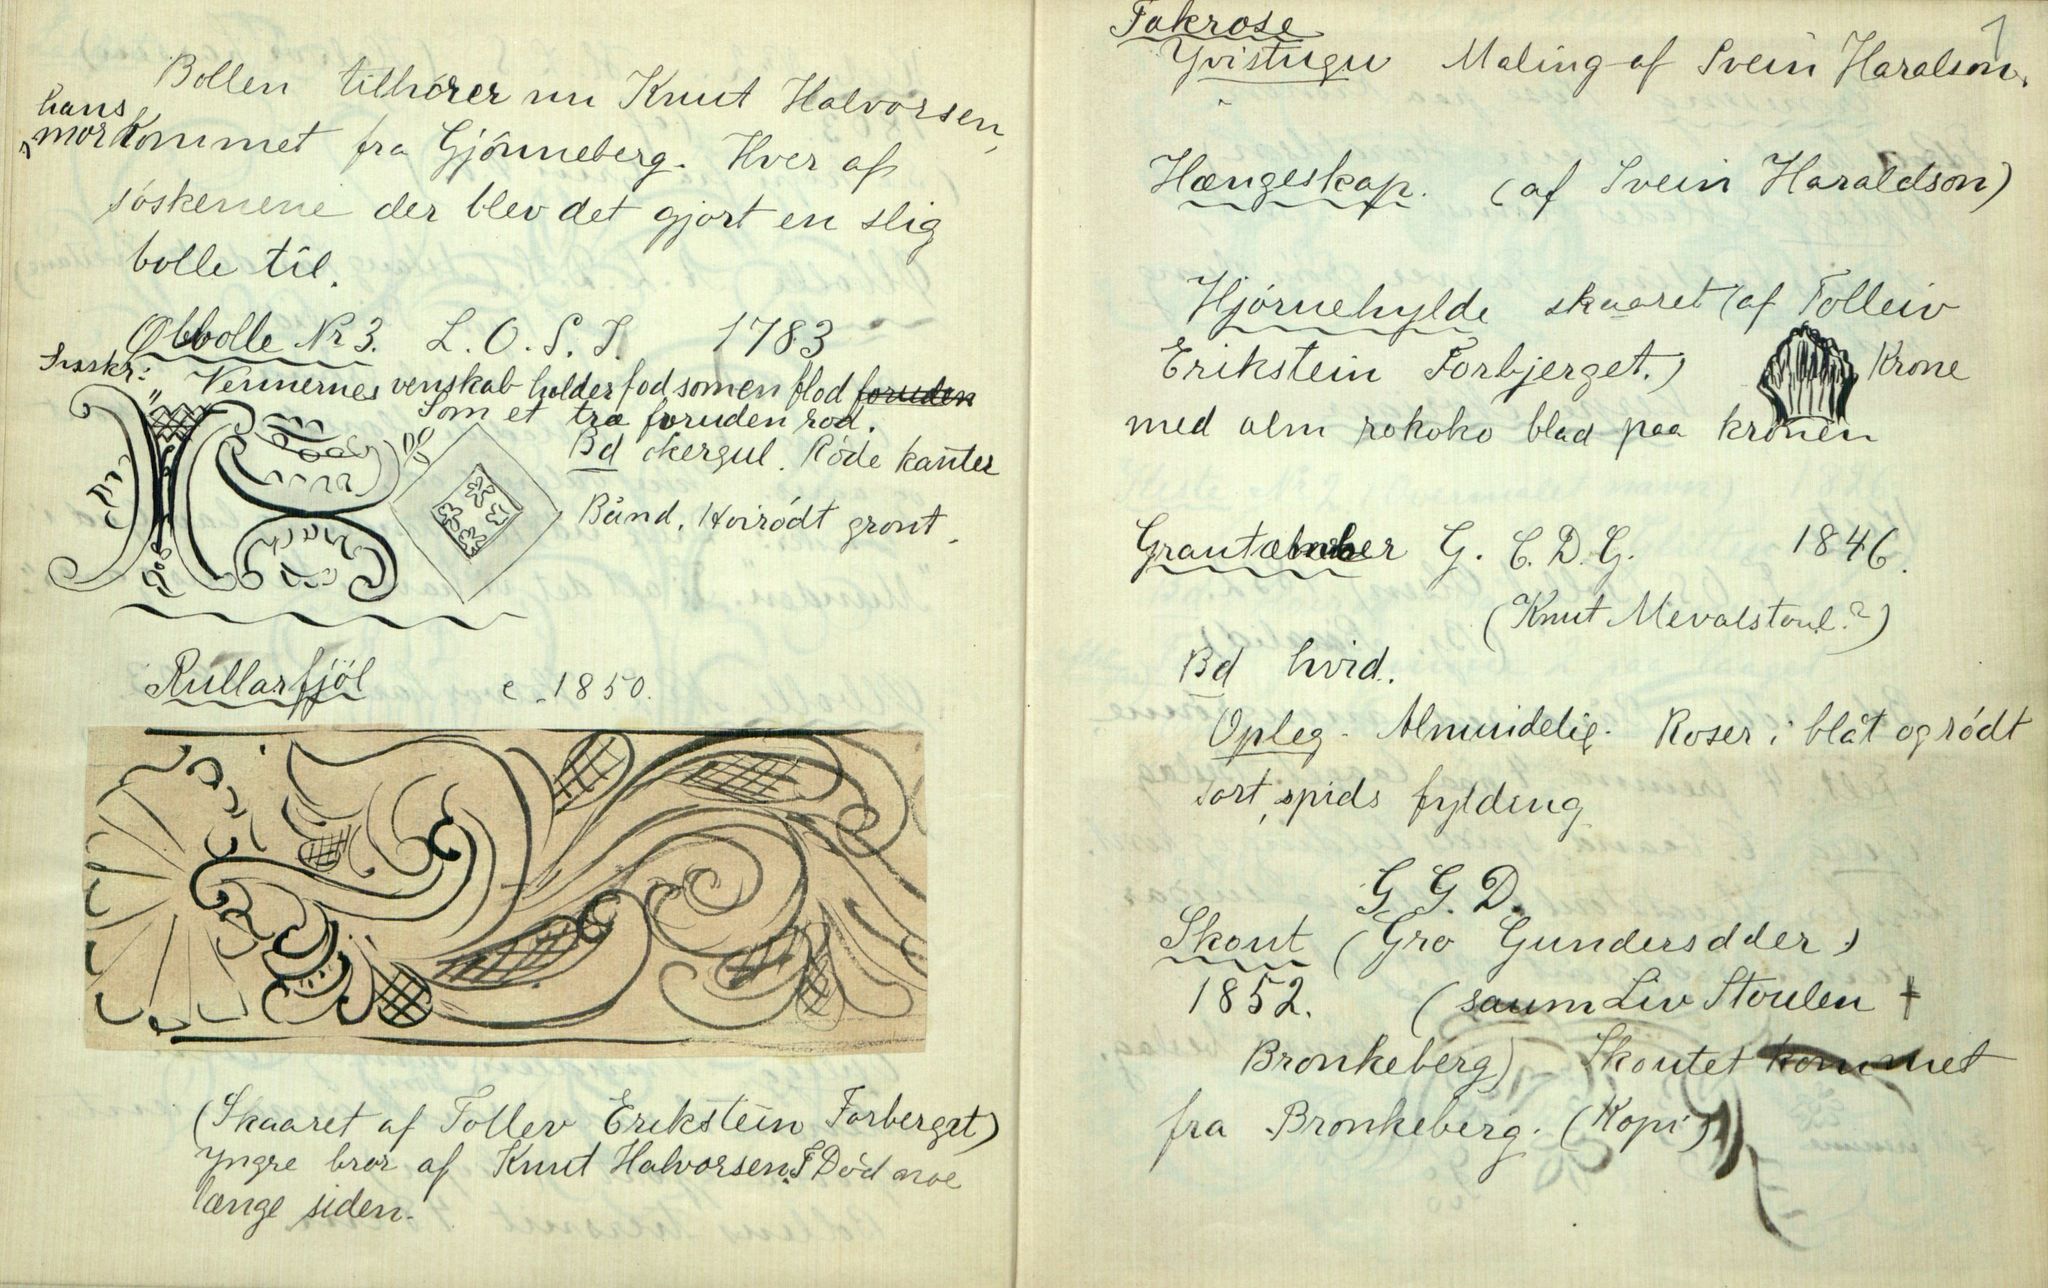 Bollen tilhører nu Knut Halvorsen,
hans
mor kommet fra Gjönneberg. Hver af
søskenene der blev det gjort en slig
bolle til.
Ølbolle Nr 3. L. O. S. I. 1783
Inskr: "Vennernes venskab holder fod som en flod foruden
Som et træ foruden rod.
Bd okergul. Røde kanter
Bånd. Hvirødt grønt.
Rullarfjöl c. 1850.
(Skaaret af Tollev Erikstein Forberget)
yngre bror af Knut Halvorsen F. Død noe
længe siden.
1
Takrose
Yvistugu Maling af Svein Haralson.
Hængeskap. (af Svein Haraldson)
Hjørnehylde skaaret (af Tolleiv
Erikstein Forbjerget.) Krone
med alm rokoko blad paa kronen
Grautæmber G. C. D. G. 1846.
(Knut Mevalstoul?)
Bd hvid.
Opleg. Almindelig. Roser i blåt og rødt
sort, spids fylding
G. G. D.
Skout (Gro Gundersdder)
1852. (saum Liv Stoulen +
Bronkeberg) Skoutet kommet
fra Bronkeberg. (Kopi)